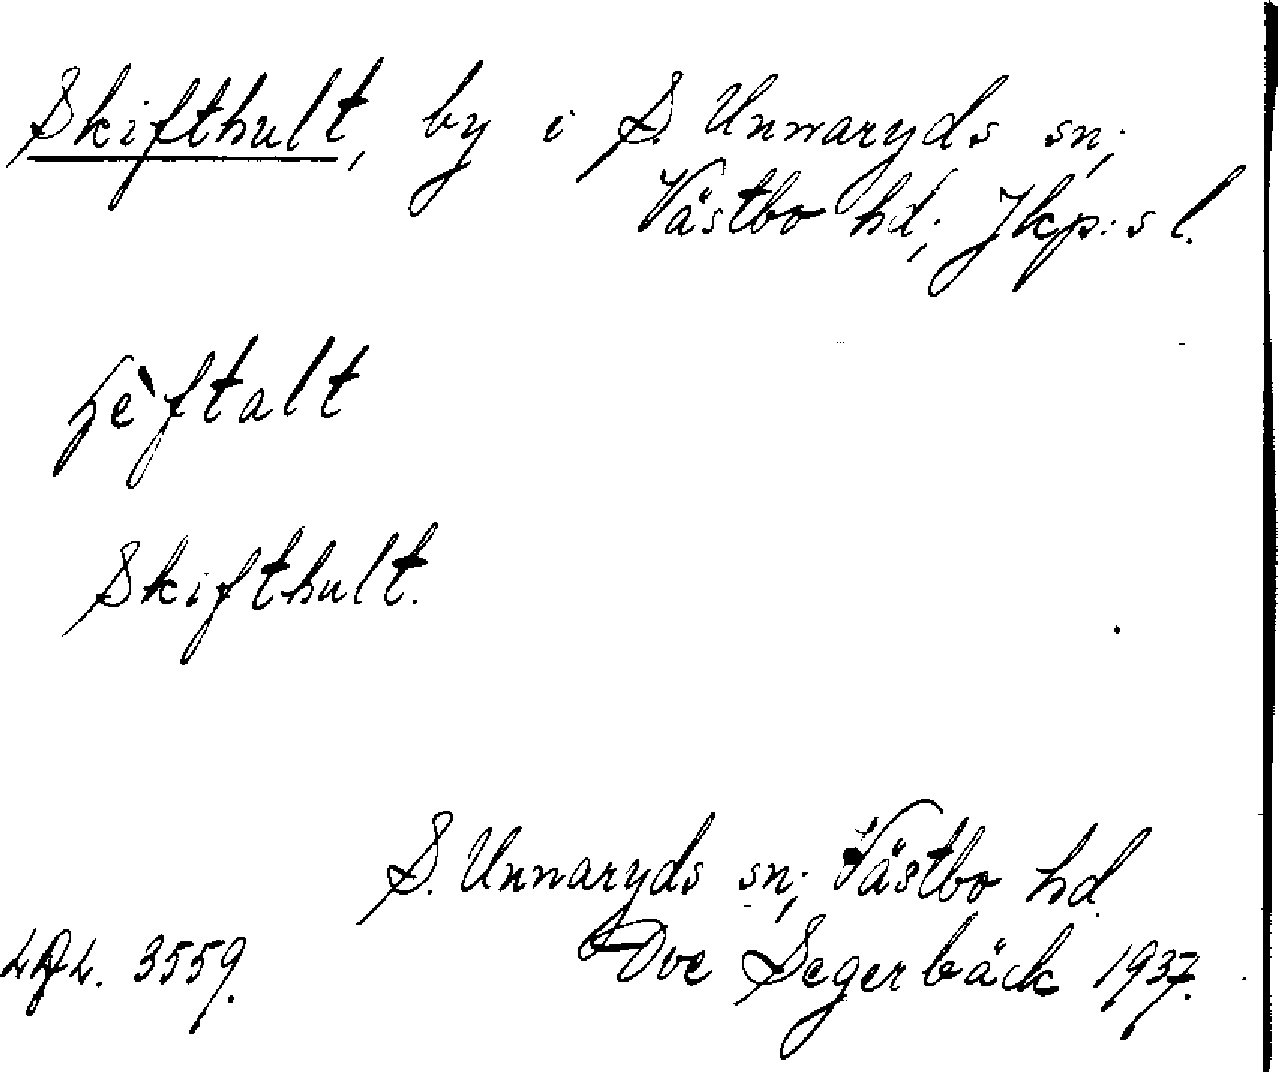 Skifthult, by i S. Unnaryds sn;
Västbo hd; Jkp:s l.
ʃè̀ftalt
Skifthult.
S. Unnaryds sn; Västbo hd.
3559.
Ove Segerbäck 1937.